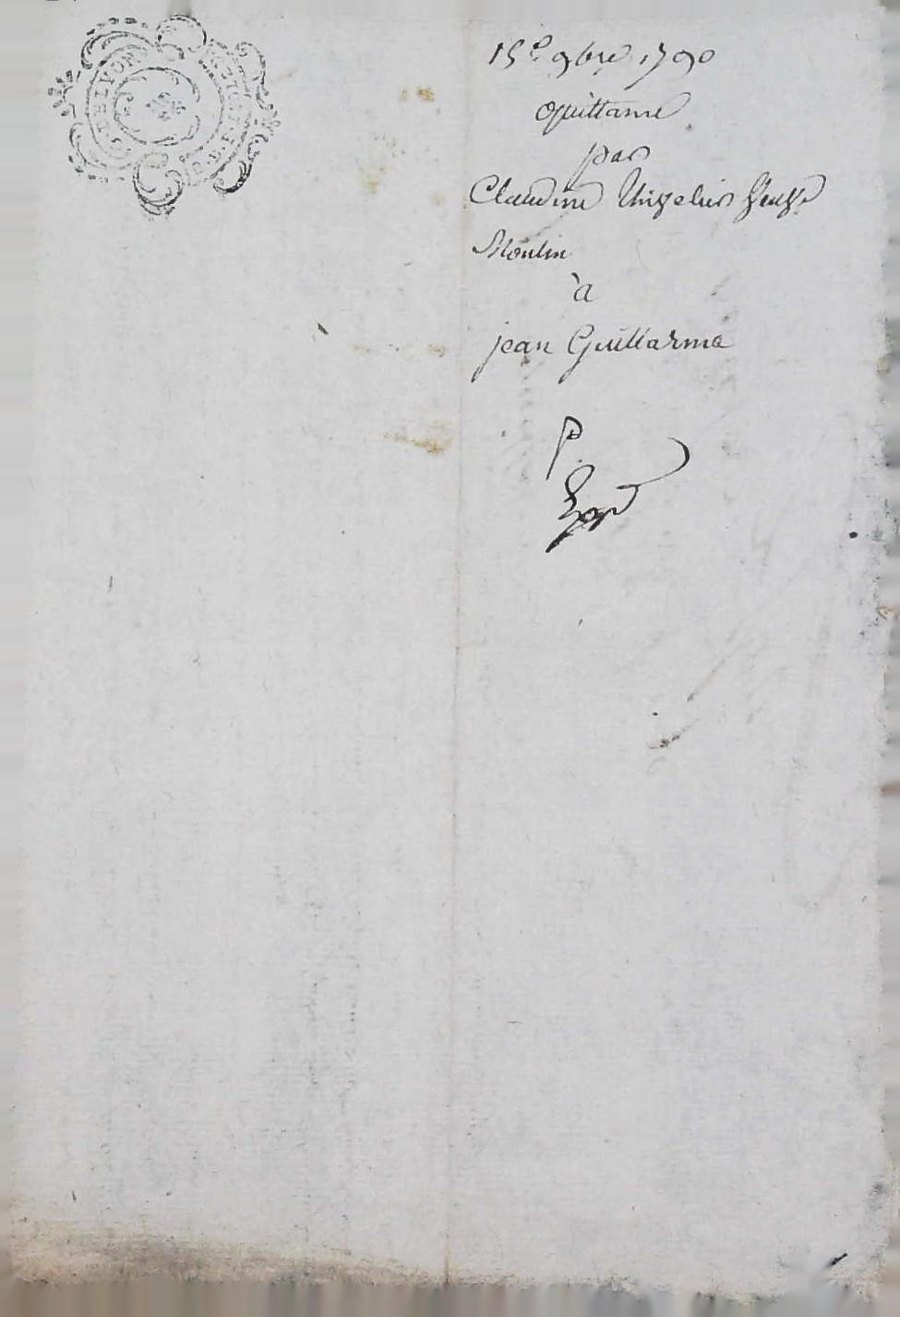 15e 9bre 1790
quittance
par
Claudine veuve
Moulin
à
jean Guillarme
P.